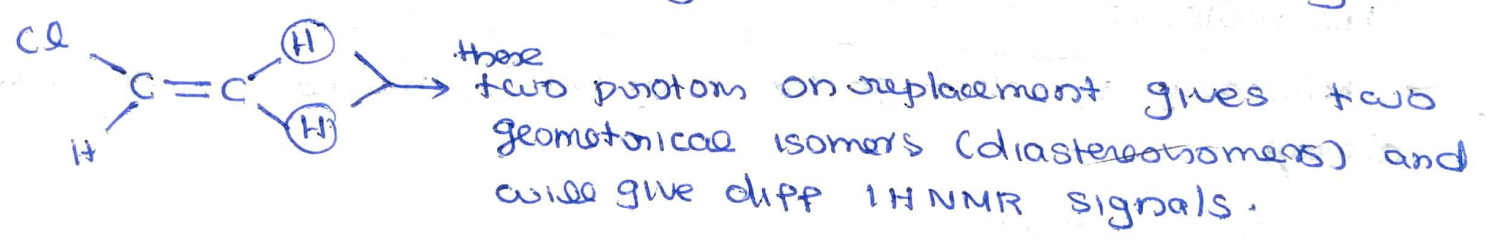 Cl H these
C=C → two protons on replacement gives two
H H geometrical isomers (diastereoisomers) and
will give diff 1H NMR signals.